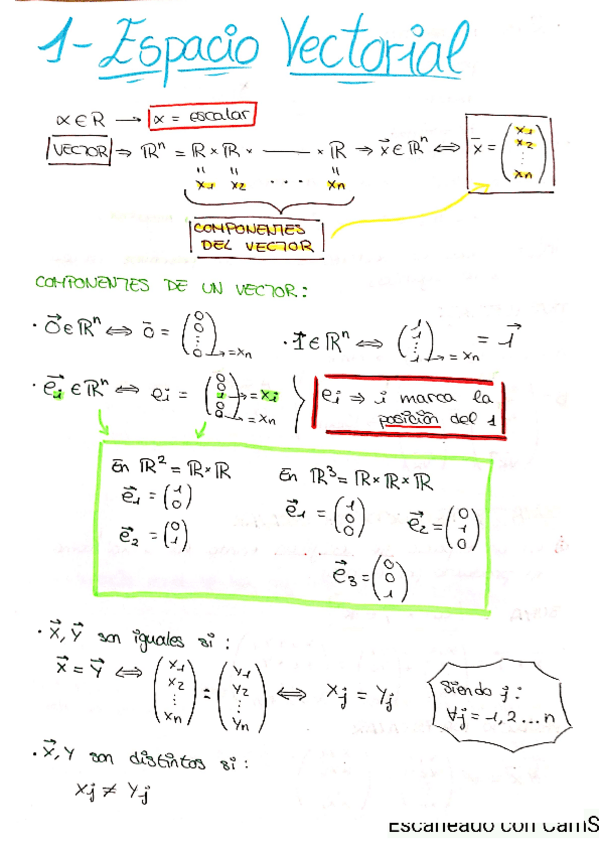 1- Espacio Vectorial
α ∈ R → α = escalar
VECTOR ⇒ ℝⁿ = ℝ × ℝ × ——— × ℝ ⇒ x⃗ ∈ ℝⁿ ⇔ x̄ = (x₁ x₂ ⋮ xₙ)
x₁ x₂ ... xₙ
COMPONENTES
DEL VECTOR
COMPONENTES DE UN VECTOR:
· 0⃗ ∈ ℝⁿ ⇔ 0̄ = (0 0 ⋮ 0) → = xₙ · 1⃗ ∈ ℝⁿ ⇔ (1 1 ⋮ 1) → = xₙ = 1⃗
· e⃗ᵢ ∈ ℝⁿ ⇔ eᵢ = (0 0 1 0 0) → = xᵢ → = xₙ
eᵢ ⇒ i marca la
posición del 1
En ℝ² = ℝ × ℝ
e⃗₁ = (1 0)
e⃗₂ = (0 1)
En ℝ³ = ℝ × ℝ × ℝ
e⃗₁ = (1 0 0) e⃗₂ = (0 1 0)
e⃗₃ = (0 0 1)
· x⃗, y⃗ son iguales si :
x⃗ = y⃗ ⇔ (x₁ x₂ ⋮ xₙ) = (y₁ y₂ ⋮ yₙ) ⇔ xⱼ = yⱼ
Siendo j :
∀j = 1, 2 ... n
· x⃗, y son distintos si :
xⱼ ≠ yⱼ
Escaneado con CamS